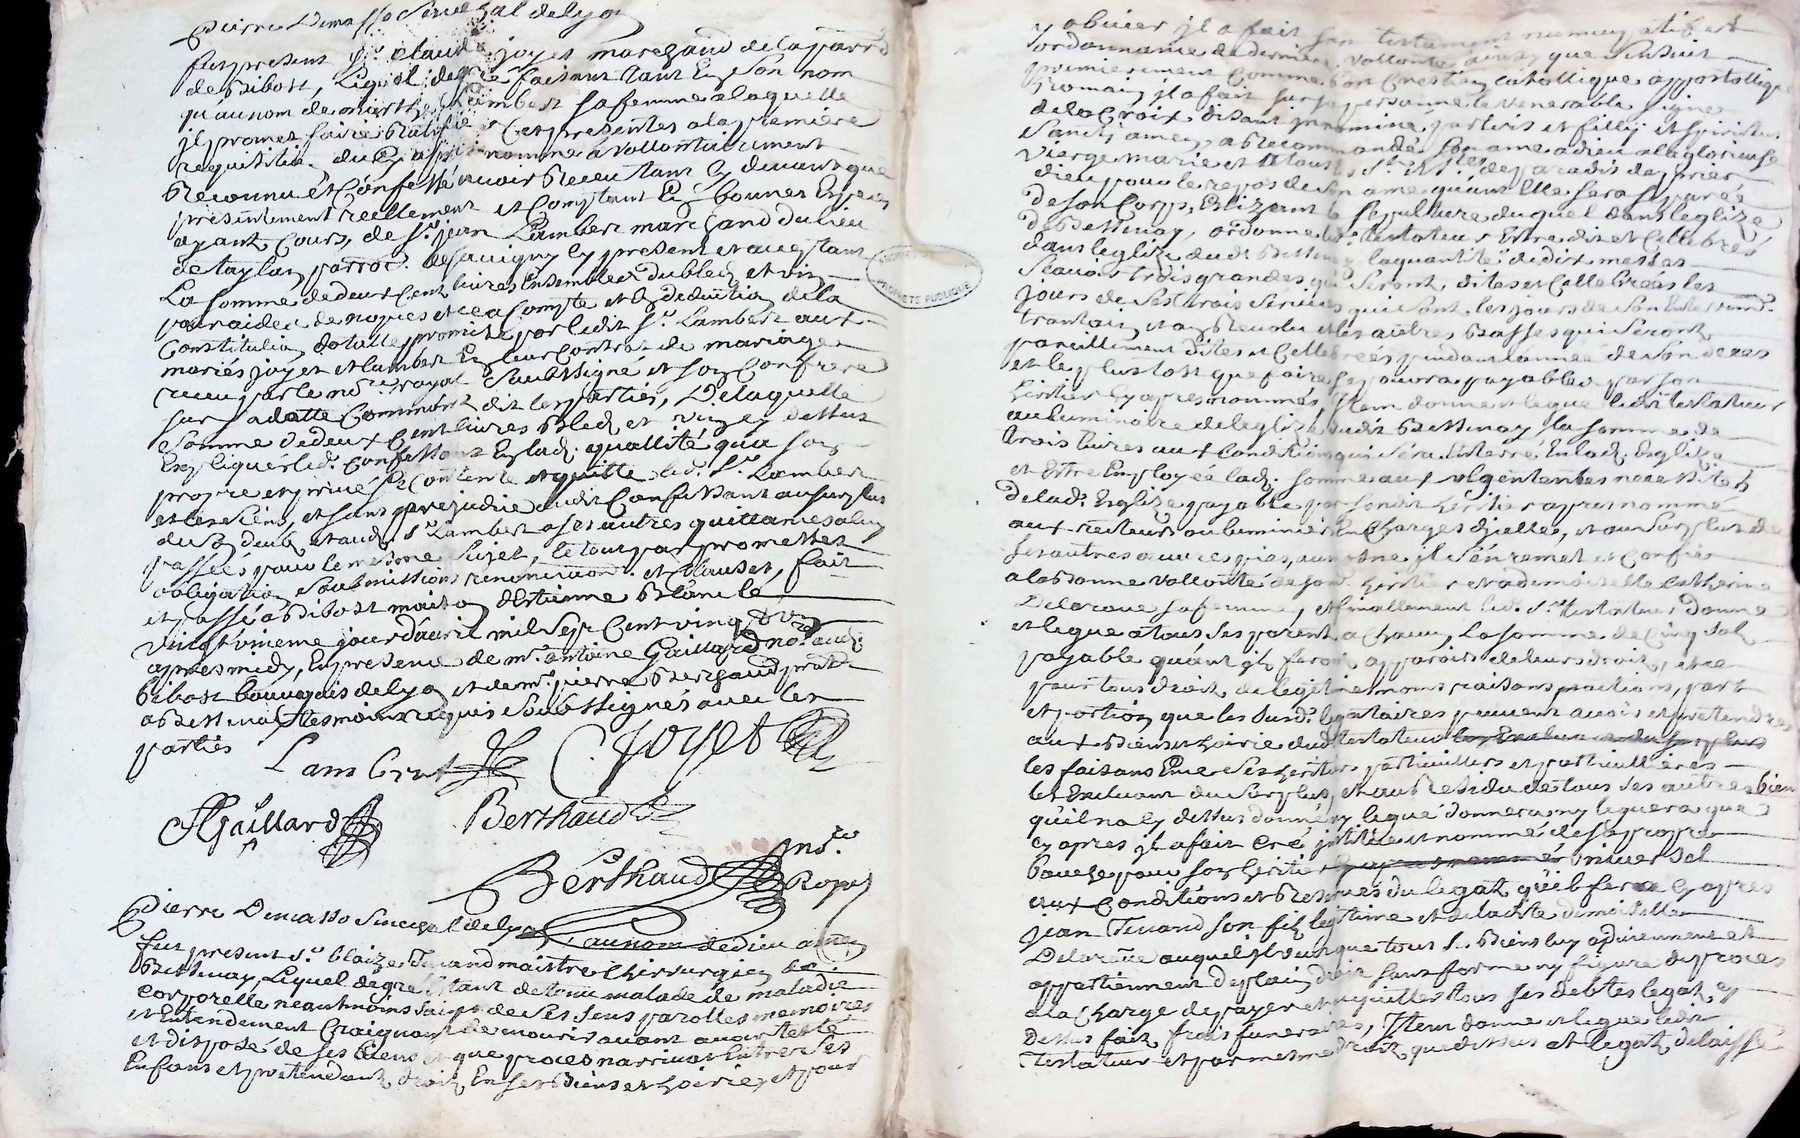 Pierre Demasso Senechal de lyon
fut present Sr. claude joyet marchand de la parr.
de Bibost, Lequel de gré faisant tant En son nom
qu'au nom de marthe Lambert sa femme a laquelle
il promet faire Ratifie ces presentes a la premiere
requisition du Cy apres nommé a vollontairement
Reconnu et Confessé avoir Receu tant Cy devant que
presentement reellement et Comptant En bonnes Especes
ayant Cours, de Sr. jean Lambert marchand du lieu
de taylan parroc. de savigny Cy present et acceptant
La somme de deux Cent livres Ensemble du bled et vin
pour aider de nopces et ce a compte et En deduction de la
Constitution dotalle promise par ledit Sr. Lambert aux
mariés joyet et lambert En leur Contrat de mariage
receu par le no.re royal Soubssigné et son Confrere
sur sa datte Comm' ont dit les parties, De laquelle
somme de deux Cent livres Bled et vin Cy dessus
Expliqué led. Confessant En lad. quallité qu'a son
propre et privé se Contente et quitte led. Sr. Lambert
et les siens, et sans prejudice audit Confessant au surplus
du son deub, et aud. Sr. Lambert a ses autres quittances a luy
passées pour le mesme sujet, le tout par promesses
obligation soubmissions renonciation. et Clauses, fait
et passé a Bibost maison d'Estienne Blanc le
vingt unieme jour d'avril mil Sept Cent vingt
apres midy, En presence de mr. antoine Gaillard no.re aud.
bibost bourgeois de lyon et de mr. pierre Berthaud prat.
a Bessenay tesmoins requis Soubssignés avec les
parties
Lambert C. joyet
A Gaillard Berthaud
Berthaud no.re Royal
Pierre Demasso Senechal de lyon, au nom de dieu amen
fut present Sr. blaize Tenand maistre Chirurgien de
Bessenay, Lequel de gré Estant detenu malade de maladie
corporelle neantmoins sain de ses sens parolles memoires
et Entendement Craignant de mourir avant avoir testé
et disposé de ses biens et que proces n'arrivat Entre ses
Enfans et pretendants droit En ses Biens et hoirie, et pour
y obvier il a fait son testament nuncupatif et
ordonnance de derniere vollonté ainsy que s'ensuit
premierement Comme bon Crestien catholique appostollique
Romain il a fait sur sa personne le venerable signe
de la Croix disant in nomine patris et filly et spiritus
Sancty amen, a Recommandé son ame a dieu a la glorieuse
Vierge marie et a tous les Sts. et Stes. de paradis de prier
dieu pour le repos de son ame quant Elle sera separée
de son Corps, Elizant la sepulture duquel dans l'eglize
de Bessenay, ordonne led. testateur Estre dit et Cellebrés
dans l'eglize dudit Bessenay la quantité de dix messes
Scavoir trois grandes qui Seront dites et Cellebrées les
jours de ses trois services qui sont les jours de son Enterrement
trantain et an Revolu et les autres Basses qui Seront
pareillement dites et Cellebrées pendant l'année de son deces
et le plus tost que faire se pourra payables par son
heritier Cy apres nommé, Item donne et legue ledit testateur
au luminaire de l'eglize dudit Bessenay, la somme de
trois livres aux Conditions qu'il sera Enterré En lad. Eglize
et Estre Employée lad. somme aux urgentes necessités
de lad. Eglize payable par sondit heritier apres nommé
aux recteurs ou luminiers En Charges d'jcelles, et au surplus de
ses autres oeuvres pies, aumosne il s'en remet et Confie
a la bonne vollonté de son heritier et a demoiselle Catherine
Delaroue sa femme, et finallement led. Sr. testateur donne
et legue a tous ses parents a Chacun La somme de Cinq sols
payable quant ils feront apparoir de leurs droits, et ce
pour tous droits de legitime noms raisons pactions, part
et portion que les susd. legataires peuvent avoir et pretendre
aux Biens et hoirie dud. testateur
les faisans Eme ses heritiers particulliers et particullieres
les Excluant du surplus, et au Residu de tous ses autres bien
qu'il na Cy dessus donné ny legué donnera ny leguera que
Cy apres il a fait cré jnstitué et nommé de sa propre
bouche pour son heritier universel
aux Conditions et Reserves du legat qu'il fera Cy apres
jean Tenand son fils legitime et de ladite demoiselle
Delaroüe auquel il veut que tous S. Biens luy adviennent et
appartiennent de plain droit sans forme ny figure de proces
a la Charge de payer et acquitter tous ses debtes legats Cy
dessus fait frais funeraires, Item donne et legue ledit
Testateur et par mesme droit que dessus et legat, delaissé